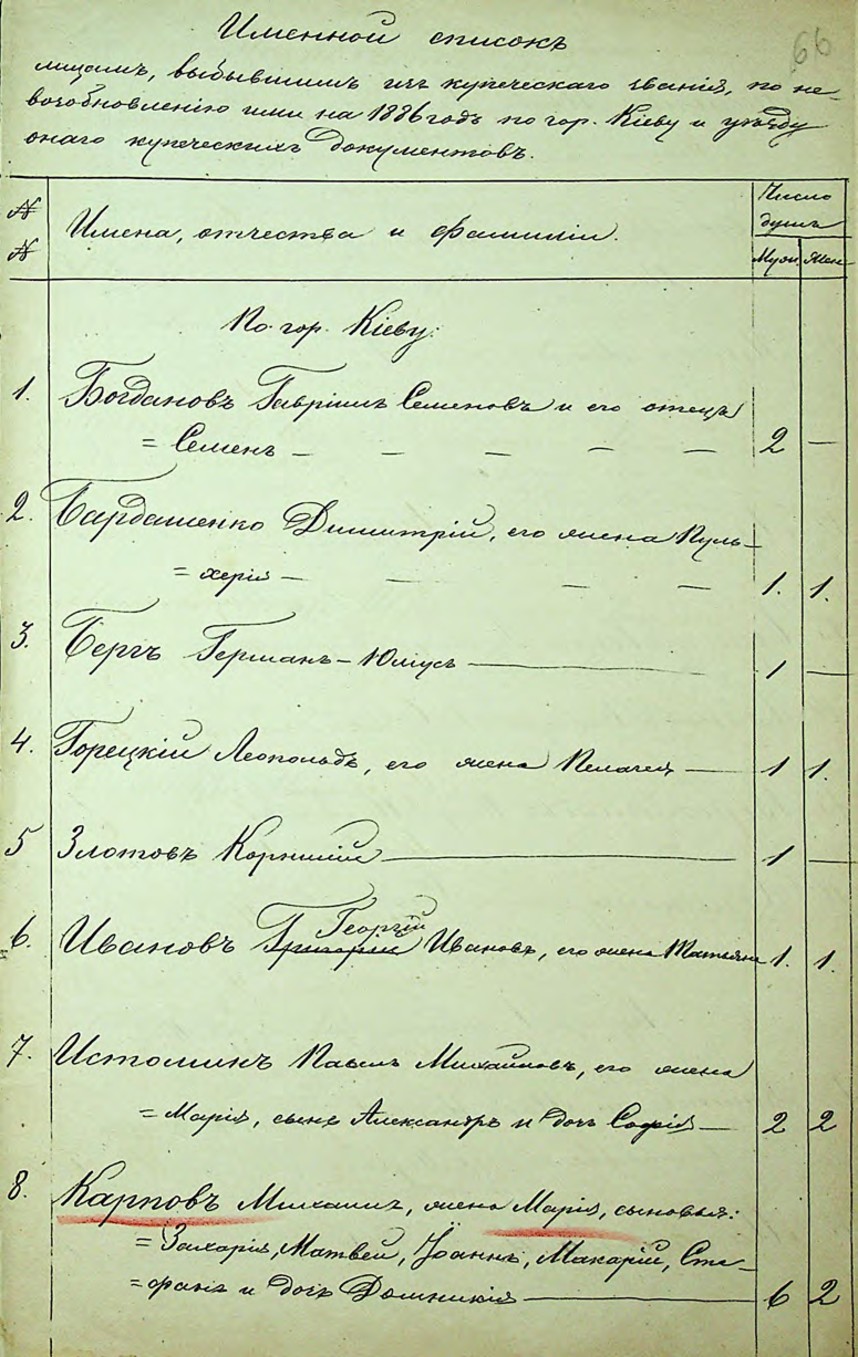 66
Именной списокъ
лицамъ, выбывшимъ изъ купеческаго званія, по не-
возобновленію ими на 1886 годъ по гор. Кіеву и уѣзду
онаго купеческихъ документовъ.
№ №
Имена, отчества и фамиліи.
Число душъ
Муж. Жен.
По гор. Кіеву:
1. Богдановъ Гавріилъ Семеновъ и его отецъ
= Семенъ — — — — — 2 —
2. Бардашенко Димитрій, его жена Пуль-
= херія — — — — 1. 1.
3. Бергъ Германъ-Юліусъ — 1 —
4. Горецкій Леопольдъ, его жена Пелагея — 1 1.
5 Злотовъ Корнилій — 1 —
6. Ивановъ Григорій Георгій Ивановъ, его жена Татьяна 1. 1.
7. Истоминъ Павелъ Михайловъ, его жена
= Марія, сынъ Александръ и дочь Софія — 2 2
8. Карповъ Михаилъ, жена Марія, сыновья:
= Захарія, Матвей, Іоаннъ, Макарій, Сте-
= фанъ и дочь Домникія — 6 2